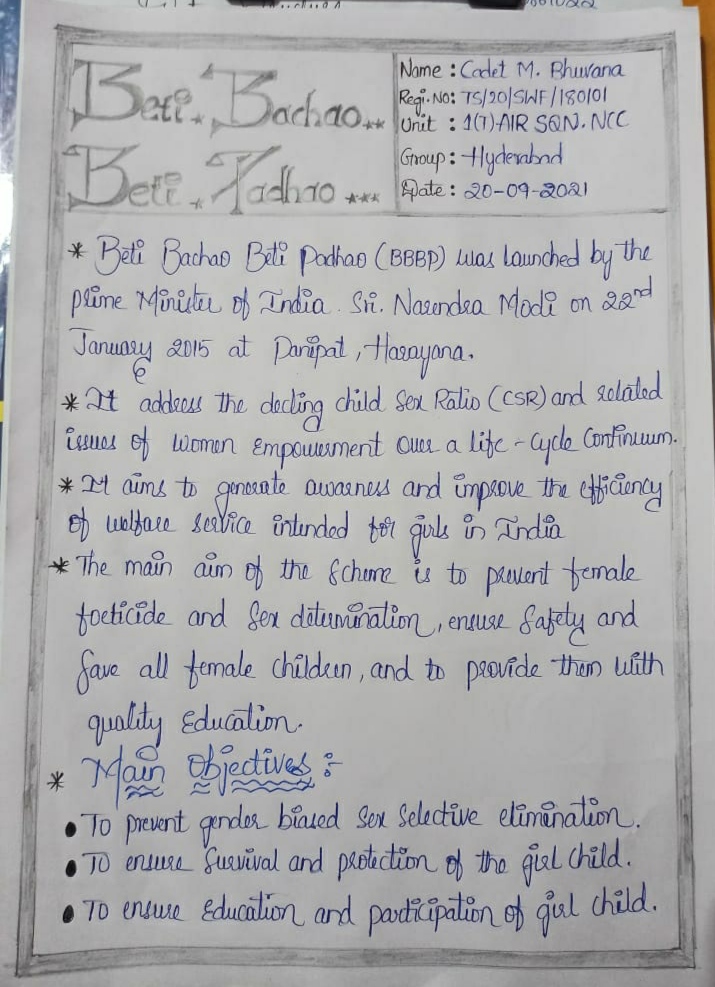 Beti. Bachao..
Beti. Padhao...
Name : Cadet M. Bhuvana
Regi.No: TS/20/SWF/180101
Unit : 1(T)-AIR SQN. NCC
Group : Hyderabad
Date : 20-09-2021
* Beti Bachao Beti Padhao (BBBP) was launched by the
prime Minister of India. Sri. Narendra Modi on 22nd
January 2015 at Panipat, Harayana.
* It address the decling child Sex Ratio (CSR) and related
issues of women empowerment over a life-cycle Continuum.
* It aims to generate awarness and improve the efficiency
of welfare service intended for girls in India
* The main aim of the Scheme is to prevent female
foeticide and Sex determination, ensure Safety and
Save all female children, and to provide them with
quality Education.
* Main Objectives :-
• To prevent gender biased Sex Selective elimination.
• To ensure Survival and protection of the girl child.
• To ensure Education and participation of girl child.